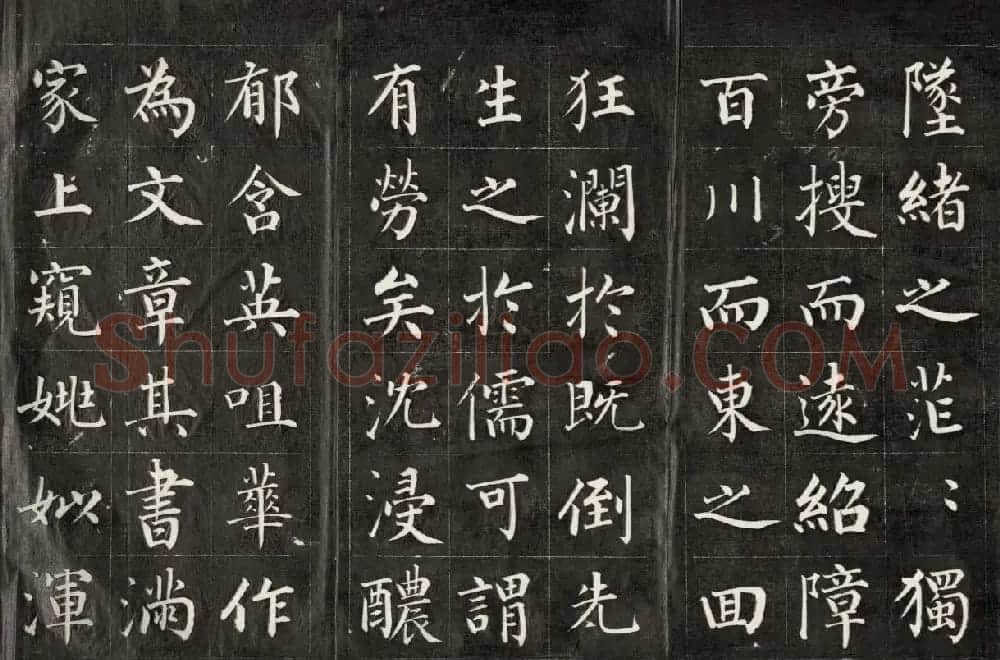 墜緒之茫〻獨
旁搜而遠紹障
百川而東之回
狂瀾於既倒先
生之於儒可謂
有勞矣沈浸醲
郁含英咀華作
為文章其書滿
家上窺姚姒渾
Shufaziliao.COM